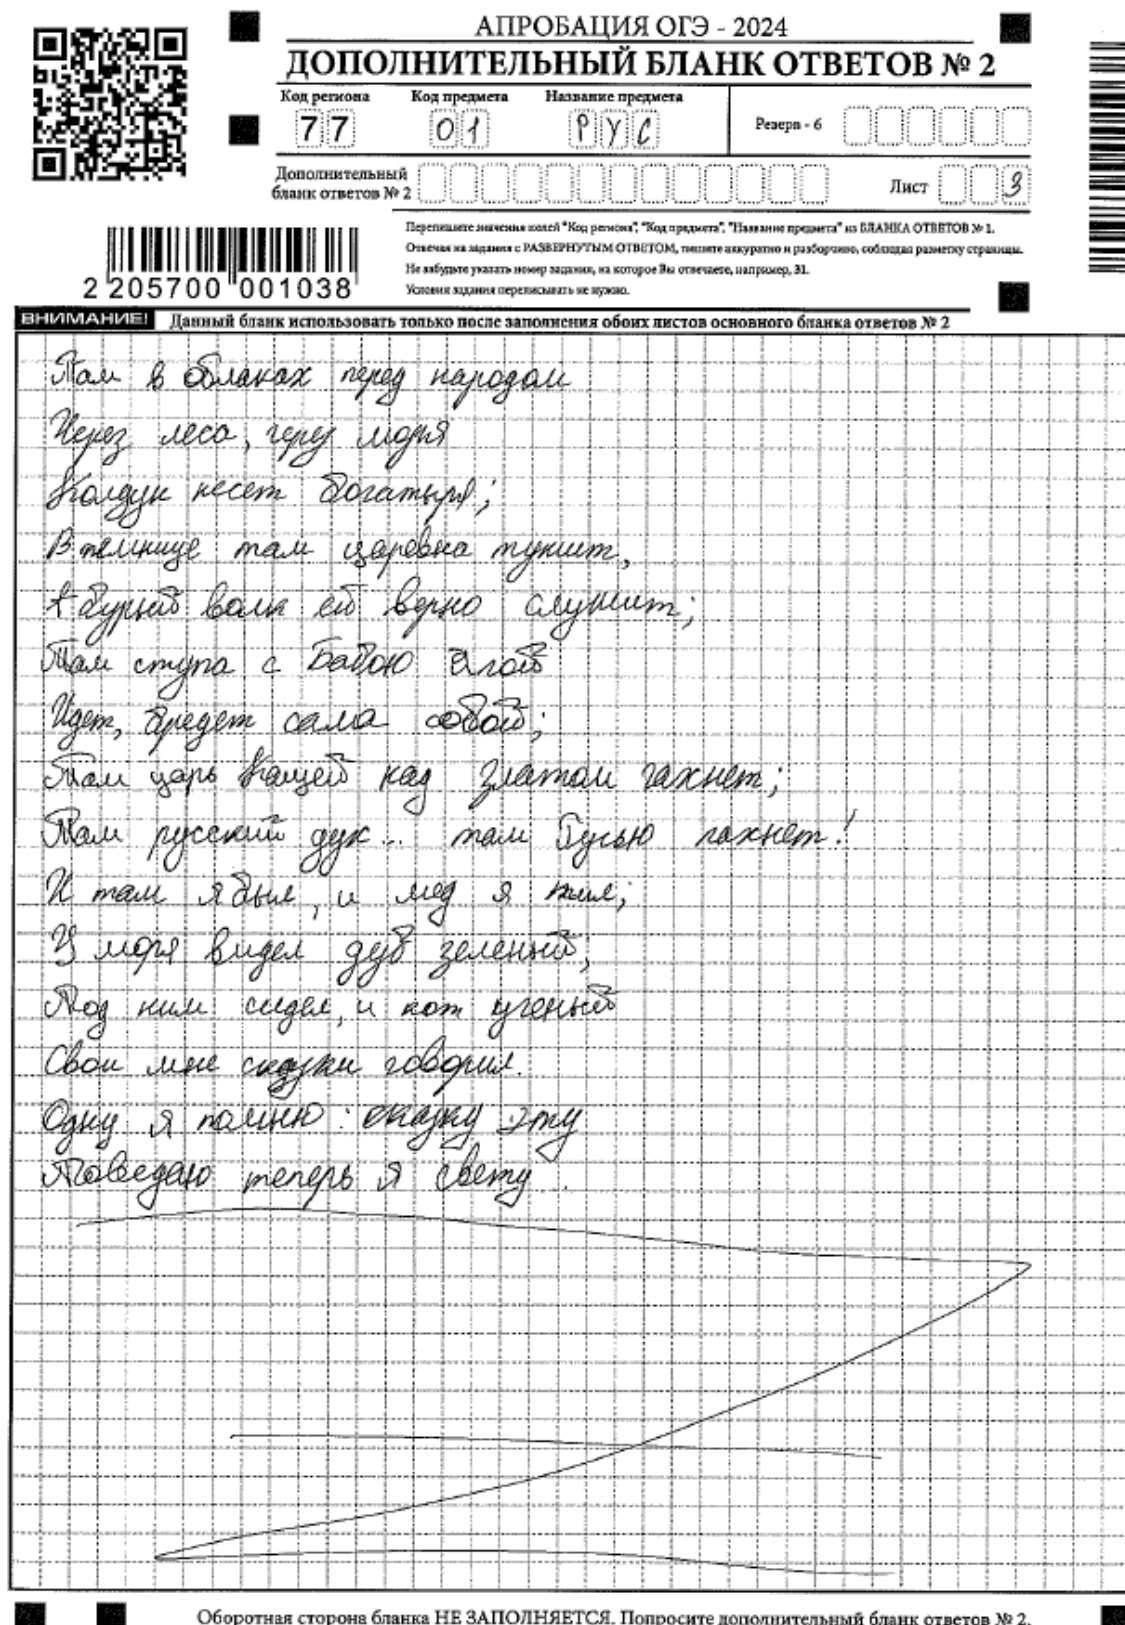 АПРОБАЦИЯ ОГЭ - 2024
ДОПОЛНИТЕЛЬНЫЙ БЛАНК ОТВЕТОВ № 2
Код региона Код предмета Название предмета
77 01 РУС Резерв - 6
Дополнительный
бланк ответов № 2 Лист 3
Перепишите значения полей "Код региона", "Код предмета", "Название предмета" из БЛАНКА ОТВЕТОВ № 1.
Отвечая на задания с РАЗВЕРНУТЫМ ОТВЕТОМ, пишите аккуратно и разборчиво, соблюдая разметку страницы.
Не забудьте указать номер задания, на которое Вы отвечаете, например, 31.
Условия задания переписывать не нужно.
2 205700 001038
ВНИМАНИЕ! Данный бланк использовать только после заполнения обоих листов основного бланка ответов № 2
Там в облаках перед народом
Через леса, через моря
Колдун несет богатыря;
В темнице там царевна тужит,
А бурый волк ей верно служит;
Там ступа с Бабою Ягой
Идет, бредет сама собой;
Там царь Кащей над златом чахнет;
Там русский дух... там Русью пахнет!
И там я был, и мед я пил;
У моря видел дуб зеленый;
Под ним сидел, и кот ученый
Свои мне сказки говорил.
Одну я помню: сказку эту
Поведаю теперь я свету.
Оборотная сторона бланка НЕ ЗАПОЛНЯЕТСЯ. Попросите дополнительный бланк ответов № 2.